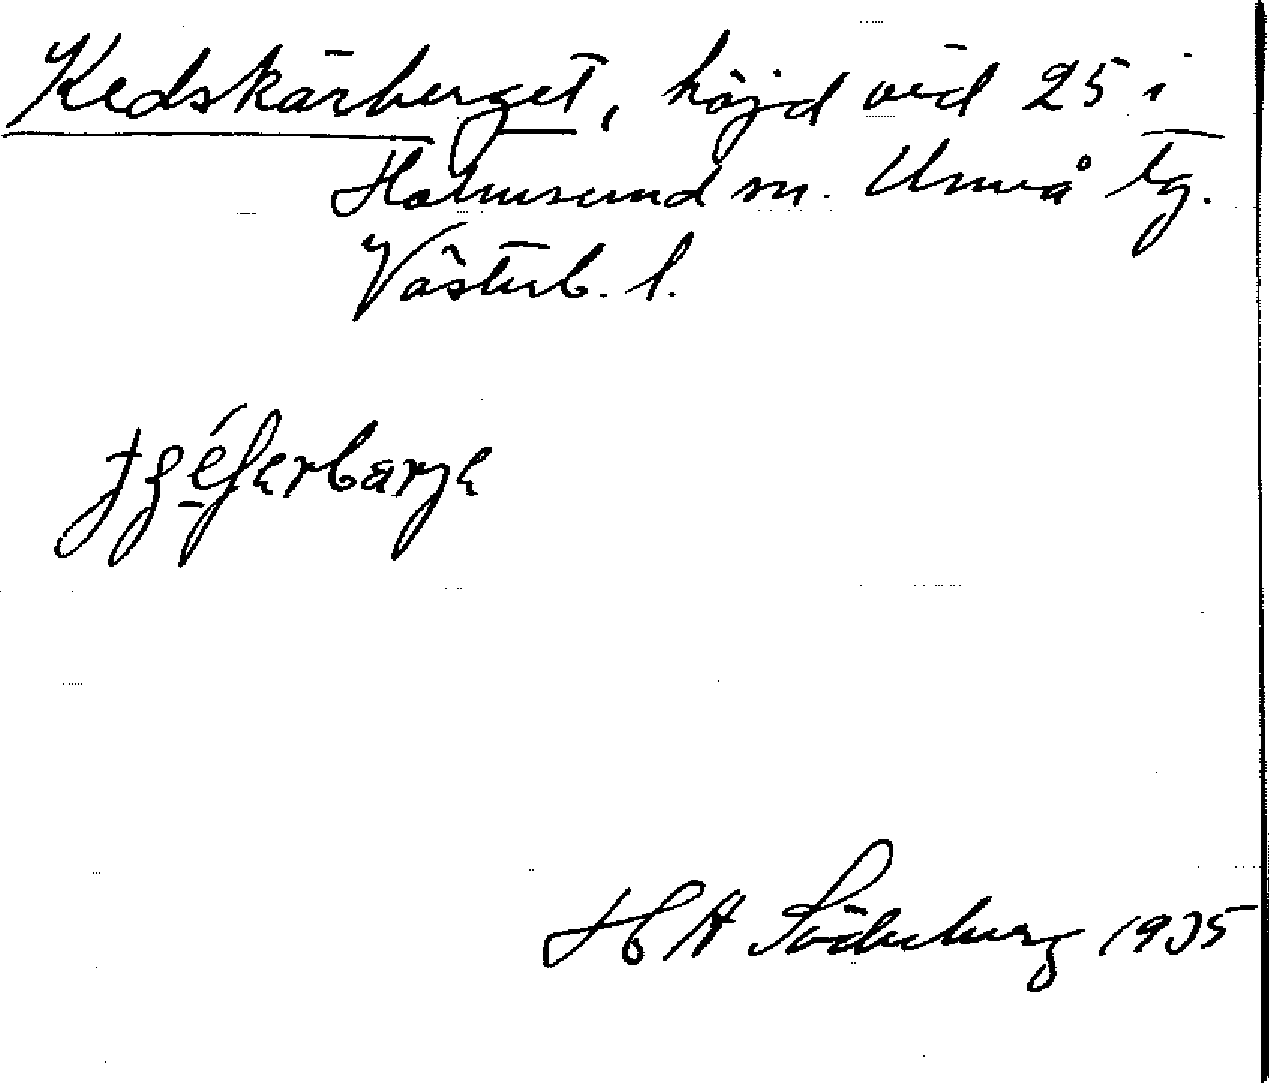 Kedskärberget, höjd vid 25 i
Holmsund sn. Umeå tg.
Västerb. l.
H A Söderberg 1935